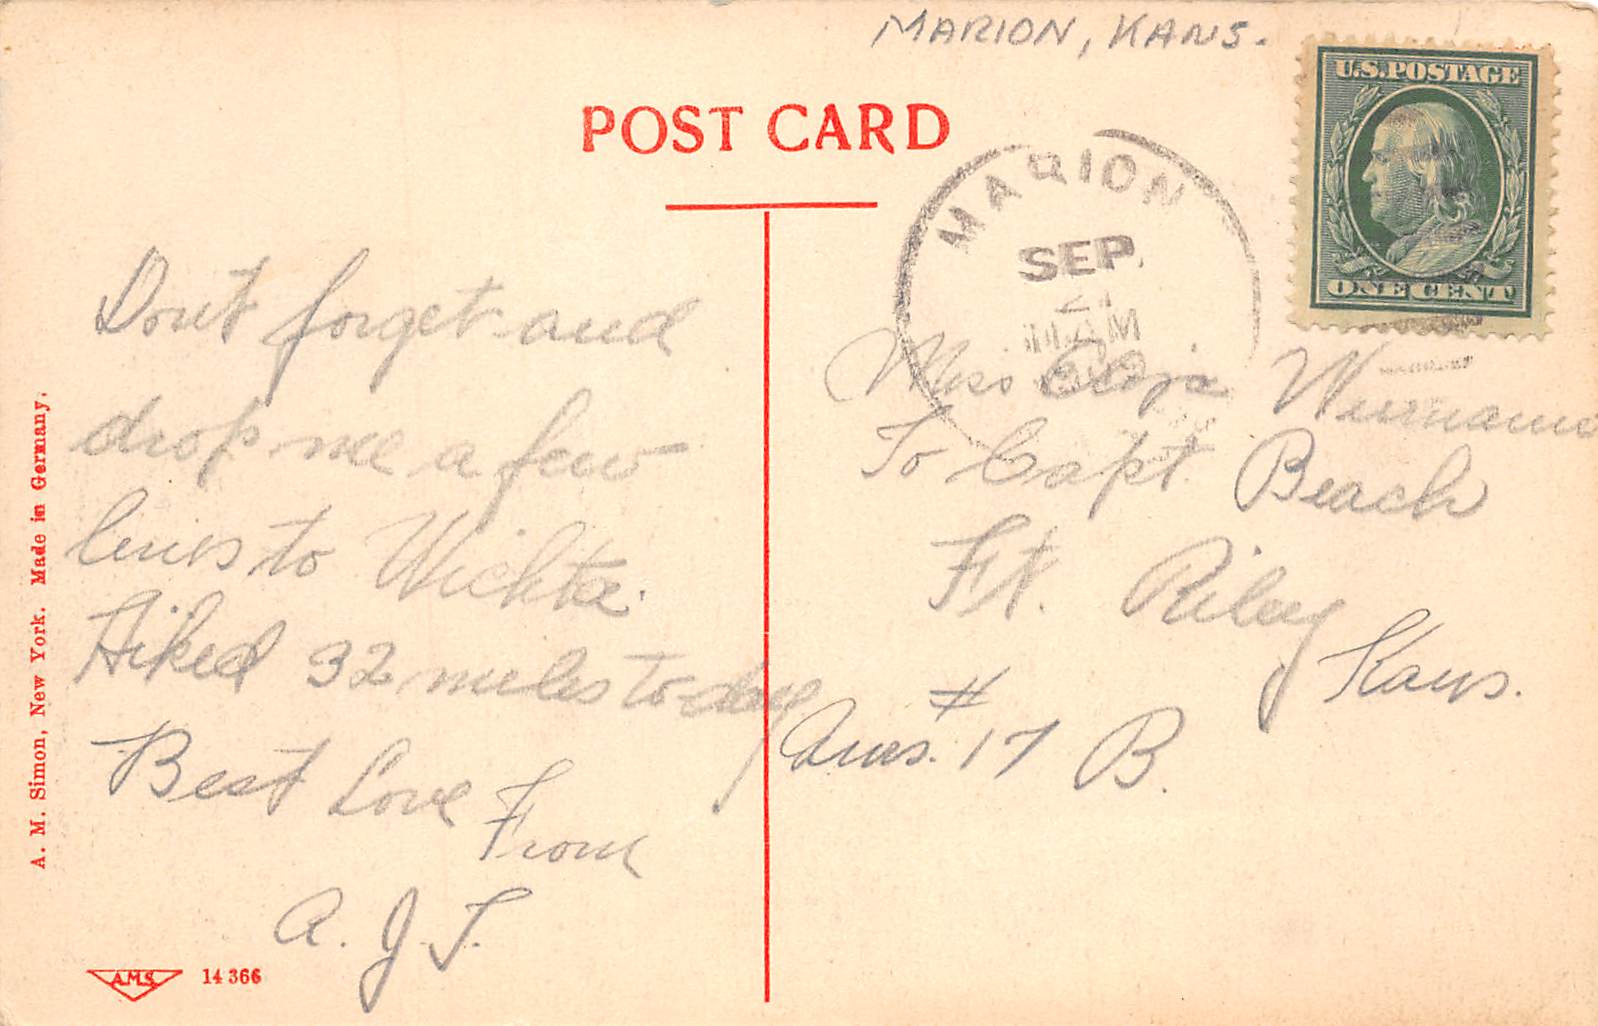 MARION, KANS.
U.S.POSTAGE
ONE CENT
POST CARD
MARION
SEP.
AM
Dont forget and
drop me a few
lines to Wichta.
Hiked 32 miles to-day
Best Love From
A. J. T.
Miss
To Capt. Beach
Ft. Riley
Kans.
#
Qurs. 17 B.
A. M. Simon, New York. Made in Germany.
A.M.S. 14 366